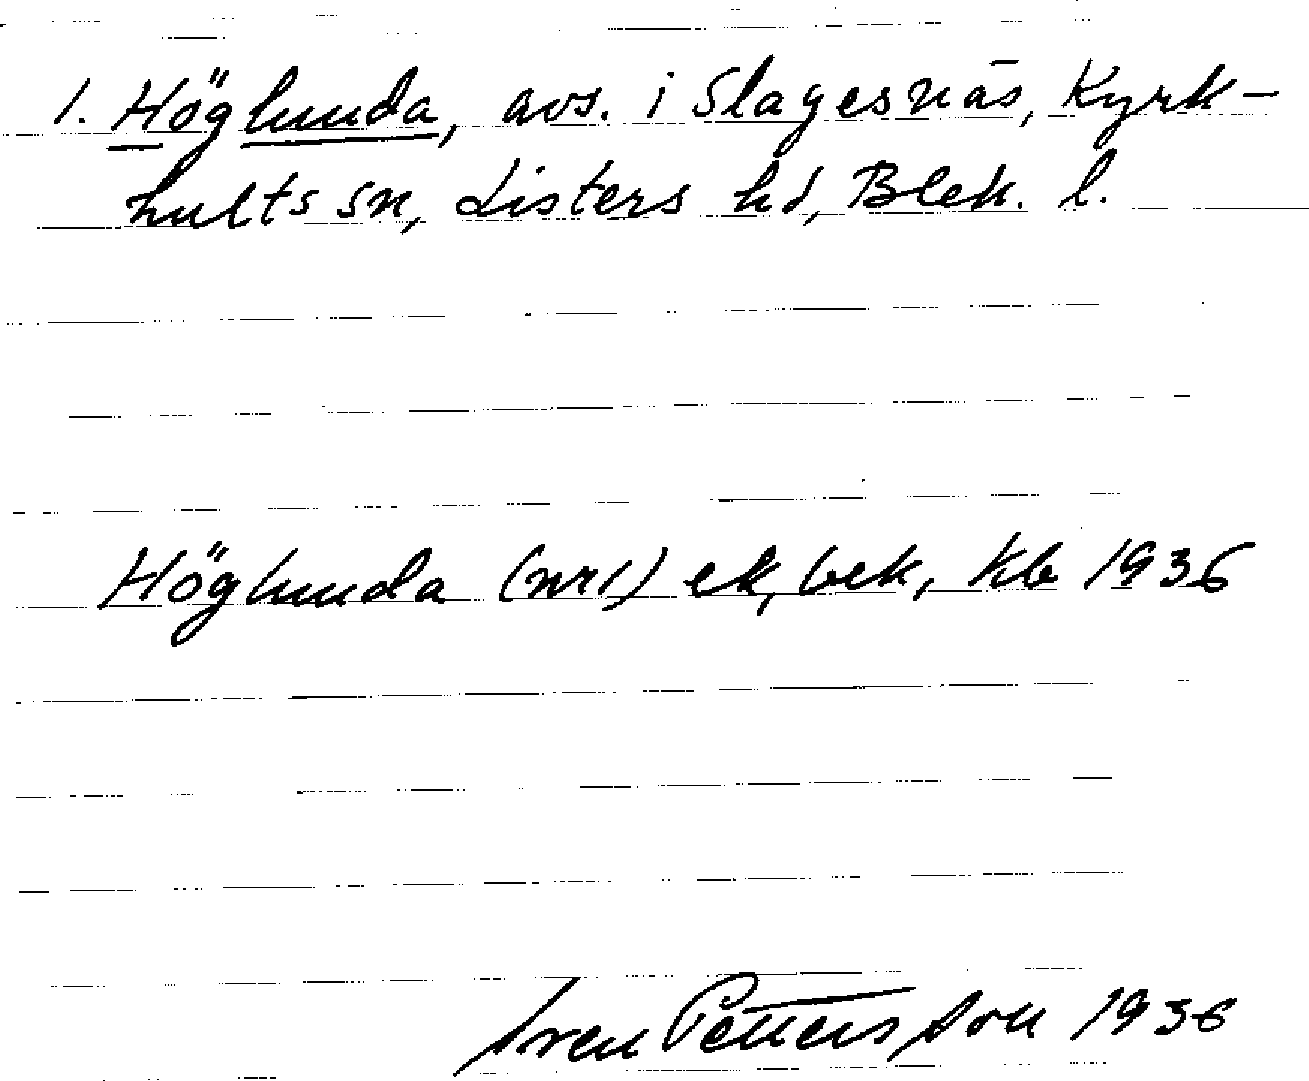 1. Höglunda, avs. i Slagesnäs, Kyrk-
hults sn, Listers hd, Blek. l.
Höglunda (nr 1) ek, bek, Kb 1936
Sven Pettersson 1936